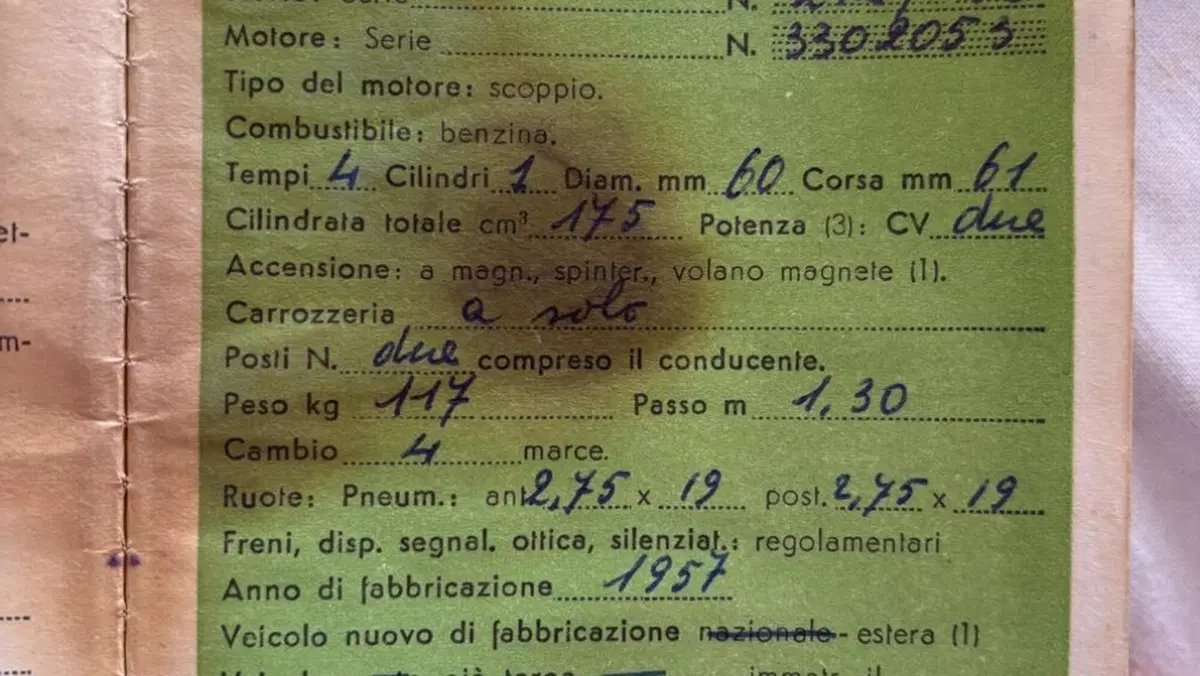 Motore: Serie N. 3302053
Tipo del motore: scoppio.
Combustibile: benzina.
Tempi 4 Cilindri 1 Diam. mm 60 Corsa mm 61
Cilindrata totale cm³ 175 Potenza (3): CV due
Accensione: a magn., spinter., volano magnete (1).
Carrozzeria a solo
Posti N. due compreso il conducente.
Peso kg 117 Passo m 1,30
Cambio 4 marce.
Ruote: Pneum.: ant. 2,75 x 19 post. 2,75 x 19
Freni, disp. segnal. ottica, silenziat.: regolamentari
Anno di fabbricazione 1957
Veicolo nuovo di fabbricazione nazionale - estera (1)
et-
m-